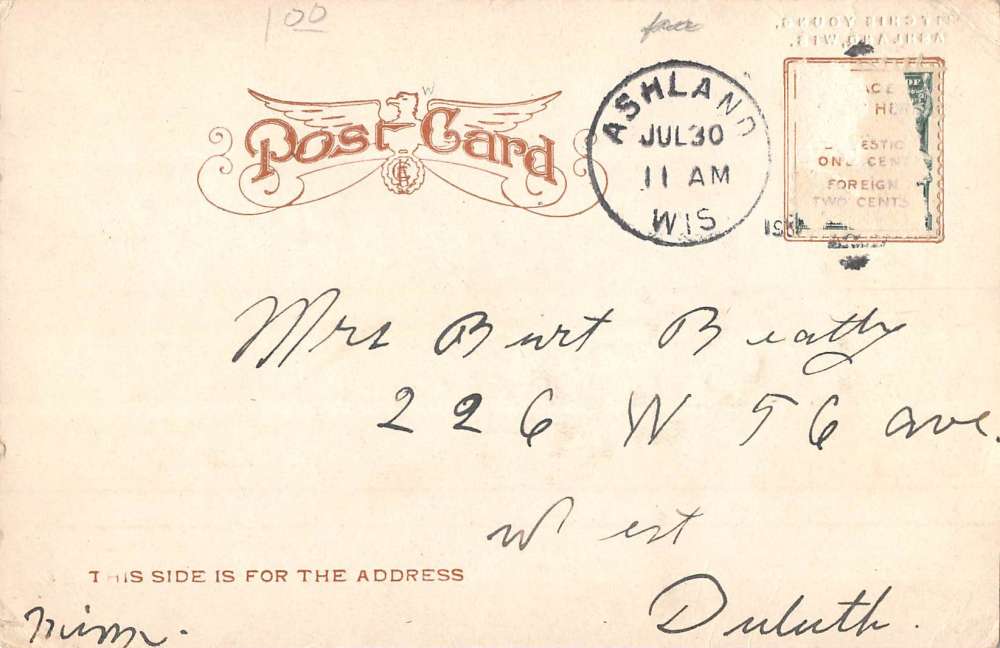 1 00
fair
ASHLAND, WIS.
Post Card
ASHLAND
JUL 30
11 AM
WIS
HER
ONE CENT
FOREIGN
TWO CENTS
Mrs Burt Beatty
226 W 56 ave.
West
Duluth.
THIS SIDE IS FOR THE ADDRESS
Minn.